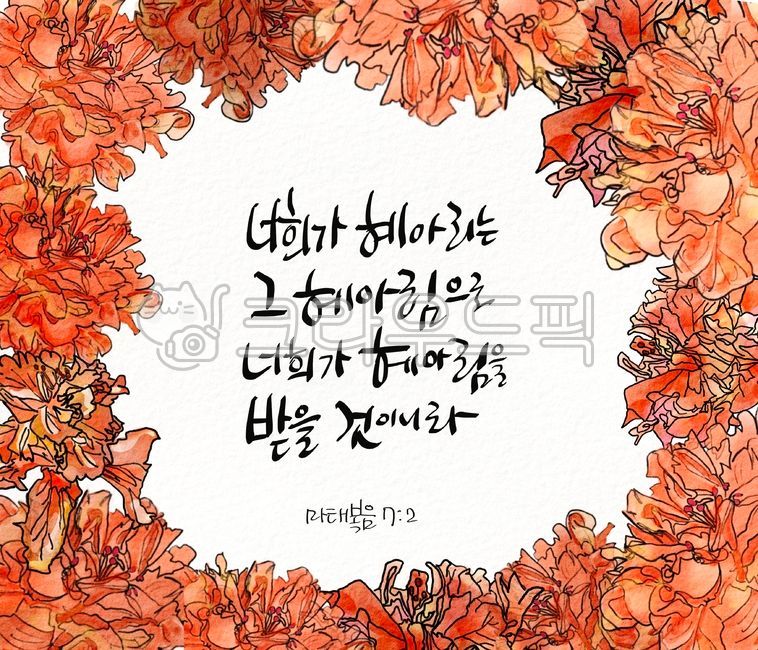 너희가 헤아리는
그 헤아림으로
너희가 헤아림을
받을 것이니라
마태복음 7:2
크라우드픽